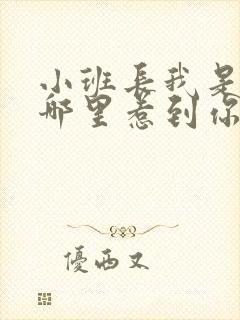 小班長我是
哪里惹到你
優西又